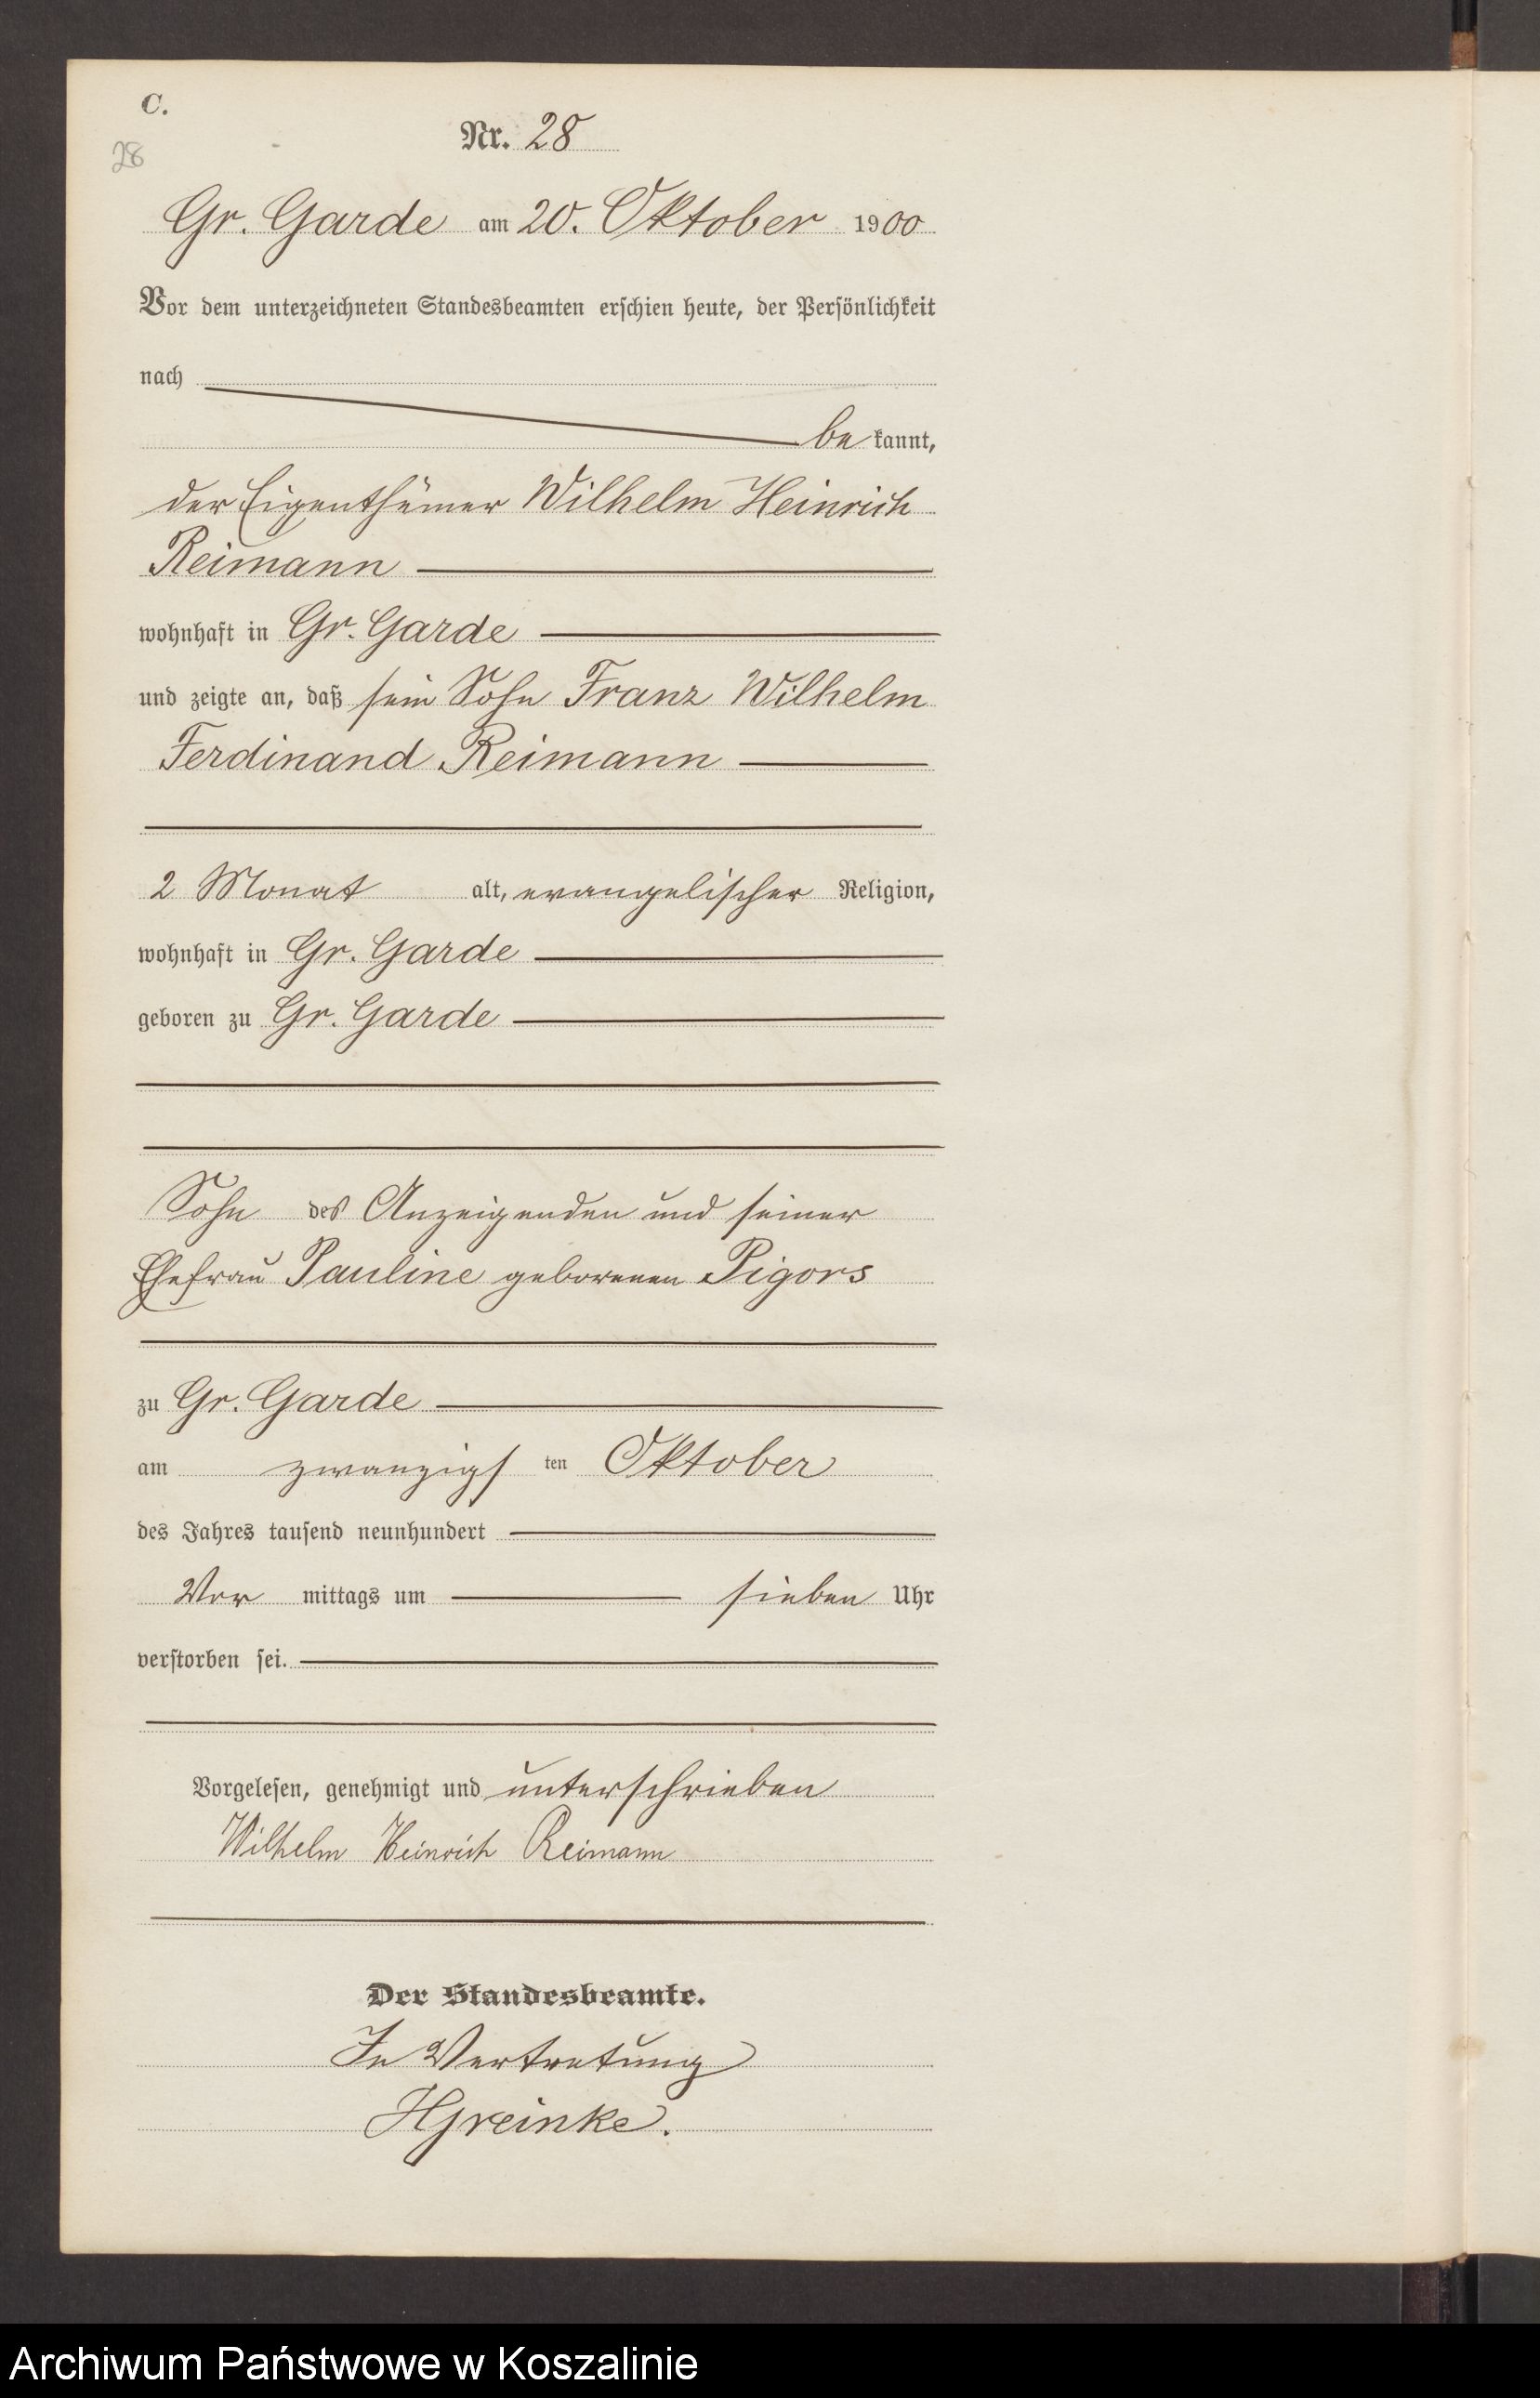 C.
Nr. 28
28
Gr. Garde am 20. Oktober 1900
Vor dem unterzeichneten Standesbeamten erschien heute, der Persönlichkeit
nach
be kannt,
der Eigenthümer Wilhelm Heinrich
Reimann
wohnhaft in Gr. Garde
und zeigte an, daß sein Sohn Franz Wilhelm
Ferdinand Reimann
2 Monat alt, evangelischer Religion,
wohnhaft in Gr. Garde
geboren zu Gr. Garde
Sohn des Anzeigenden und seiner
Ehefrau Pauline geborenen Pigors
zu Gr. Garde
am zwanzigs ten Oktober
des Jahres tausend neunhundert
Vor mittags um sieben Uhr
verstorben sei.
Vorgelesen, genehmigt und unterschrieben
Wilhelm Heinrich Reimann
Der Standesbeamte.
In Vertretung
HGreinke.
Archiwum Państwowe w Koszalinie